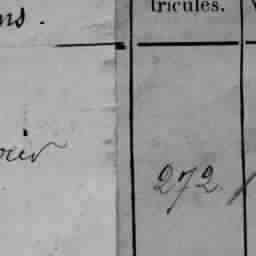 ns.
tricules.
272.